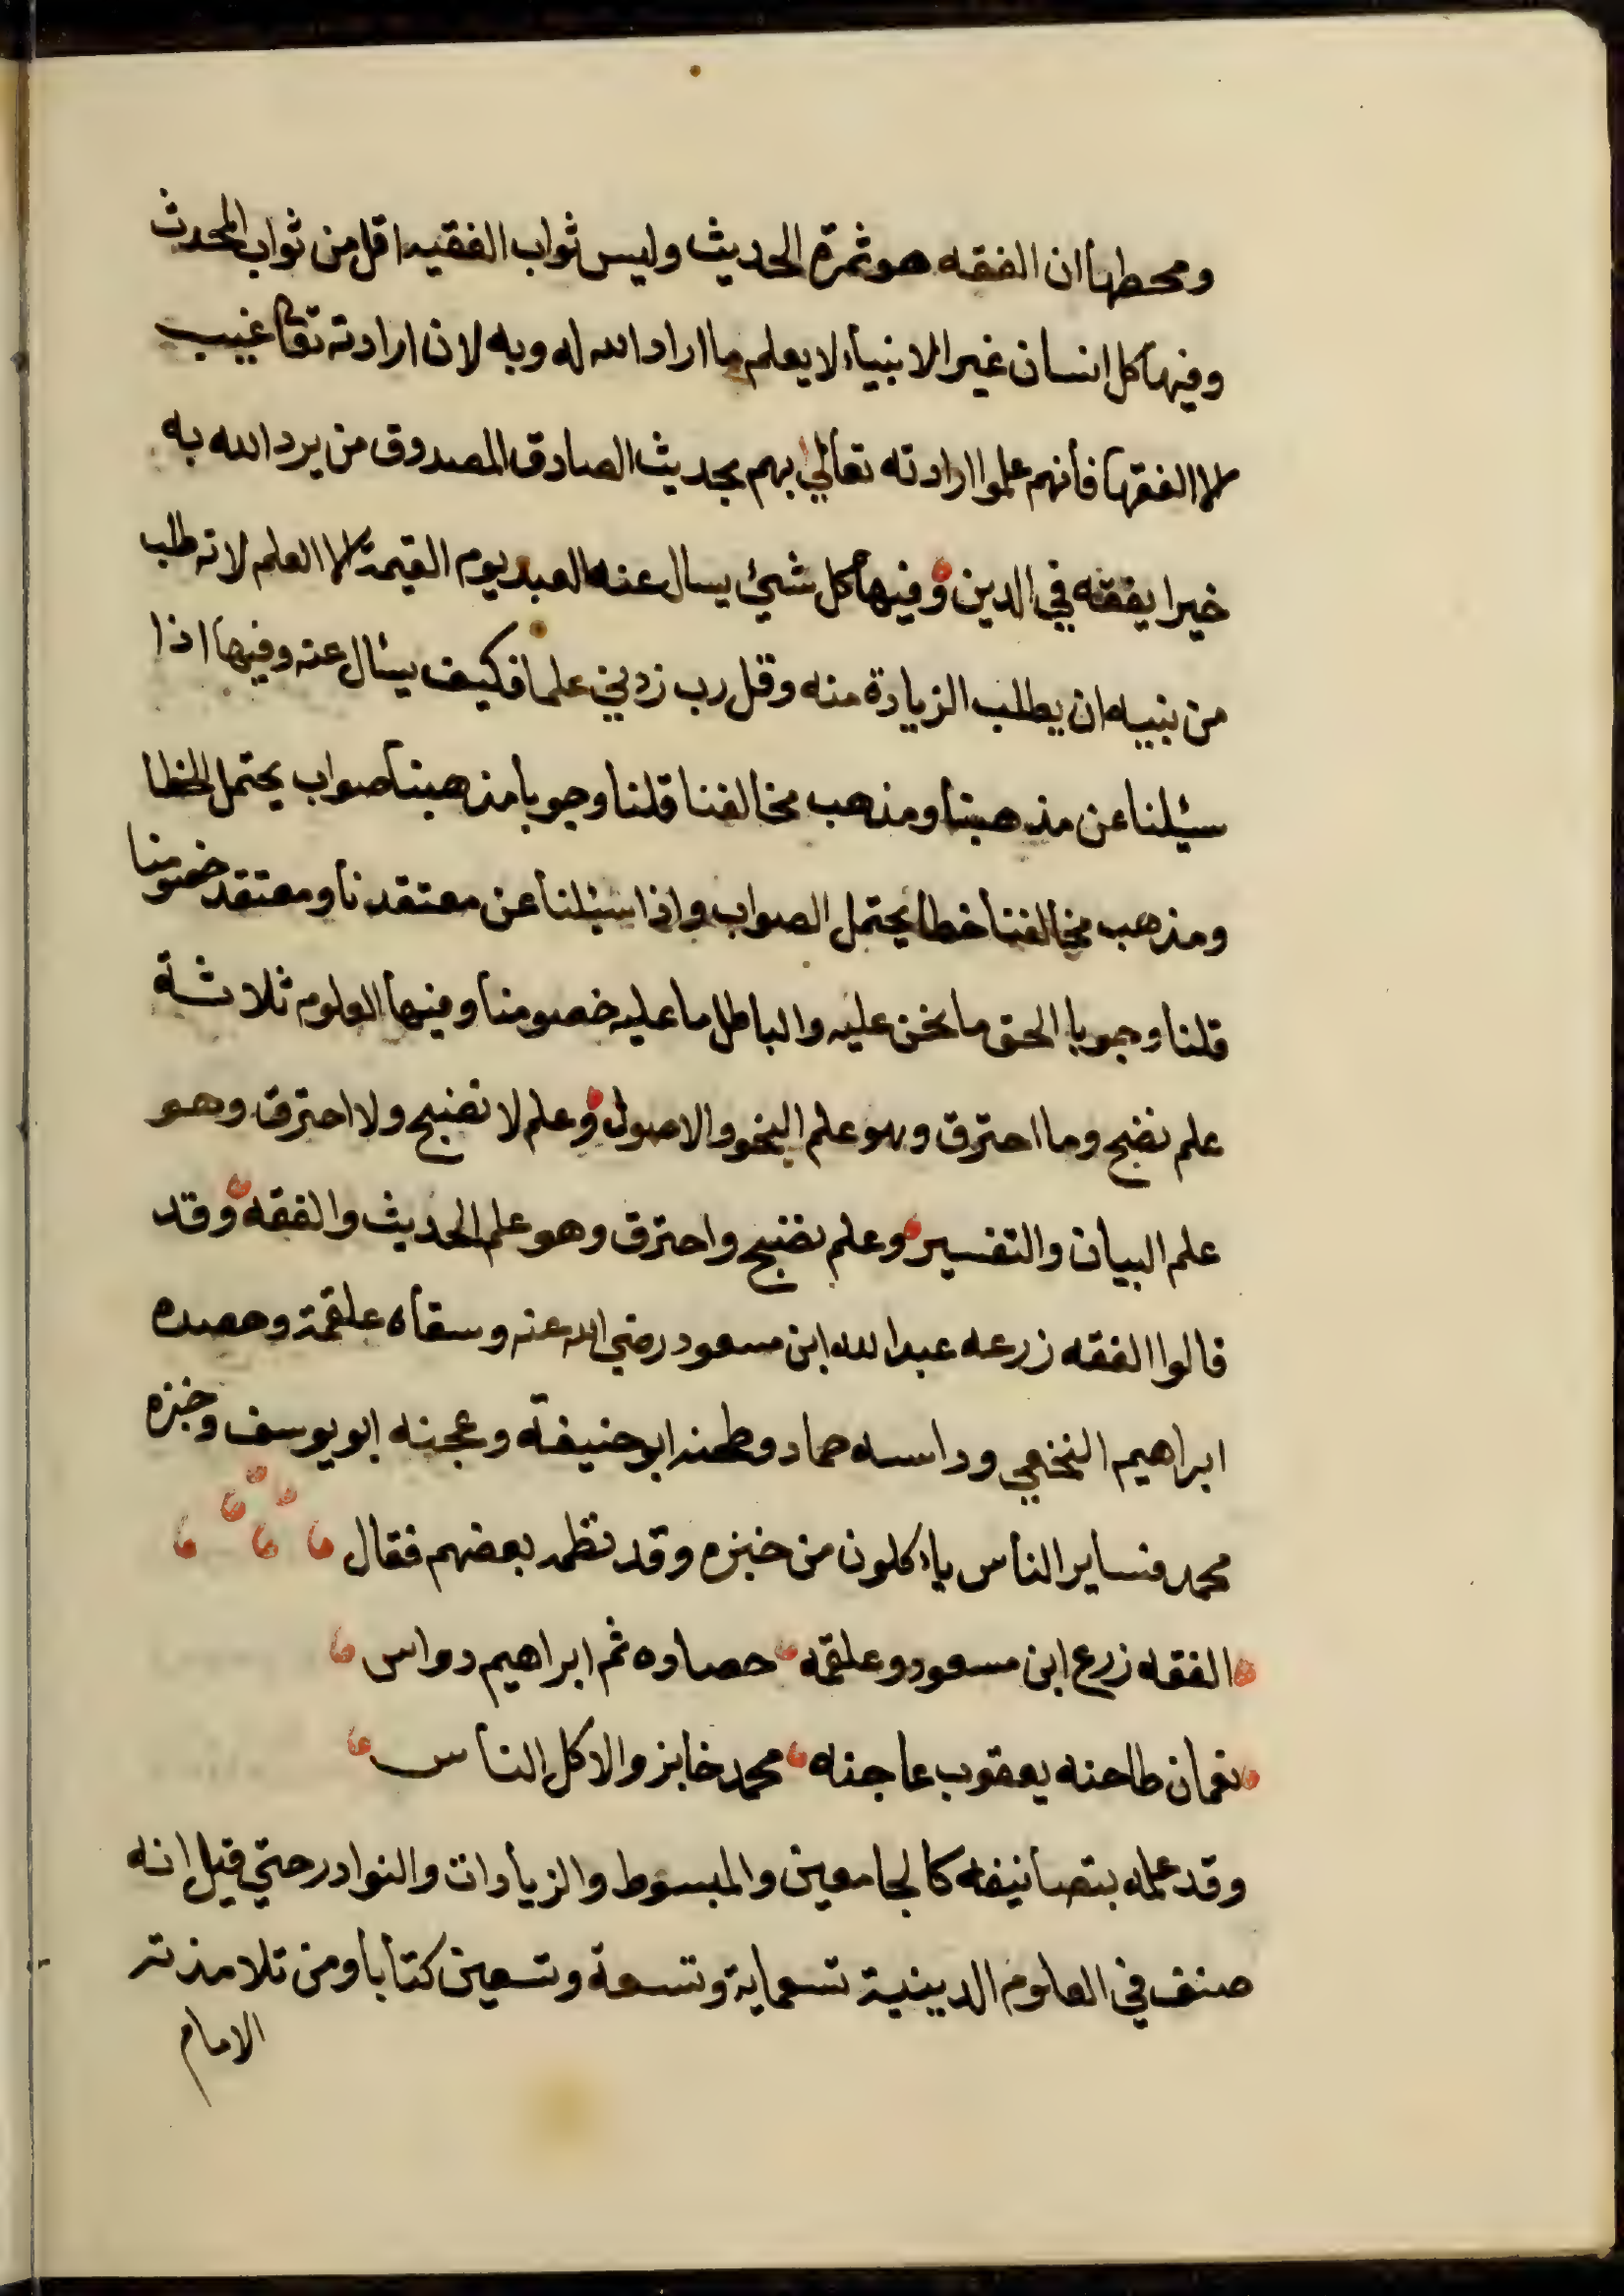 ومحطها ان الفقه هو ثمرة الحديث وليس ثواب الفقيه اقل من ثواب المحدث
وفيها كل انسان غير الانبياء لا يعلم ما اراد الله له وبه لان ارادته تعا غيب
الا الفقها فانهم علموا ارادته تعالي بهم بحديث الصادق المصدوق من يرد الله به
خيرا يفقهه في الدين وفيها كل شيئ يسال عنه العبد يوم القيمة الا العلم لانه طلب
من نبيه ان يطلب الزيادة منه وقل رب زدني علما فكيف يسئال عنه وفيها اذا
سئيلنا عن مذهبنا ومذهب مخالفنا قلنا وجوبا مذهبنا صواب يحتمل الخطا
ومذهب مخالفنا خطا يحتمل الصواب واذا سئيلنا عن معتقدنا ومعتقد خصومنا
قلنا وجوبا الحق ما نحن عليه والباطل ما عليه خصومنا وفيها العلوم ثلاثة
علم نضج وما احترق وهو علم النحو والاصول وعلم لا نضج ولا احترق وهو
علم البيان والتفسير وعلم نضج واحترق وهو علم الحديث والفقه وقد
قالوا الفقه زرعه عبد الله ابن مسعود رضي الله عنه وسقاه علقمة وحصده
ابراهيم النخعي وداسه حماد وطحنه ابو حنيفة وعجنه ابو يوسف وخبزه
محمد فساير الناس ياكلون من خبزه وقد نظمه بعضهم فقال
الفقه زرع ابن مسعود وعلقمه حصاده ثم ابراهيم دواس
نعمان طاحنه يعقوب عاجنه محمد خابز والاكل الناس
وقد علمه بتصانيفه كالجامعين والمبسوط والزيادات والنوادر حتي قيل انه
صنف في العلوم الدينية تسعماية وتسعة وتسعين كتابا ومن تلامذته
الامام